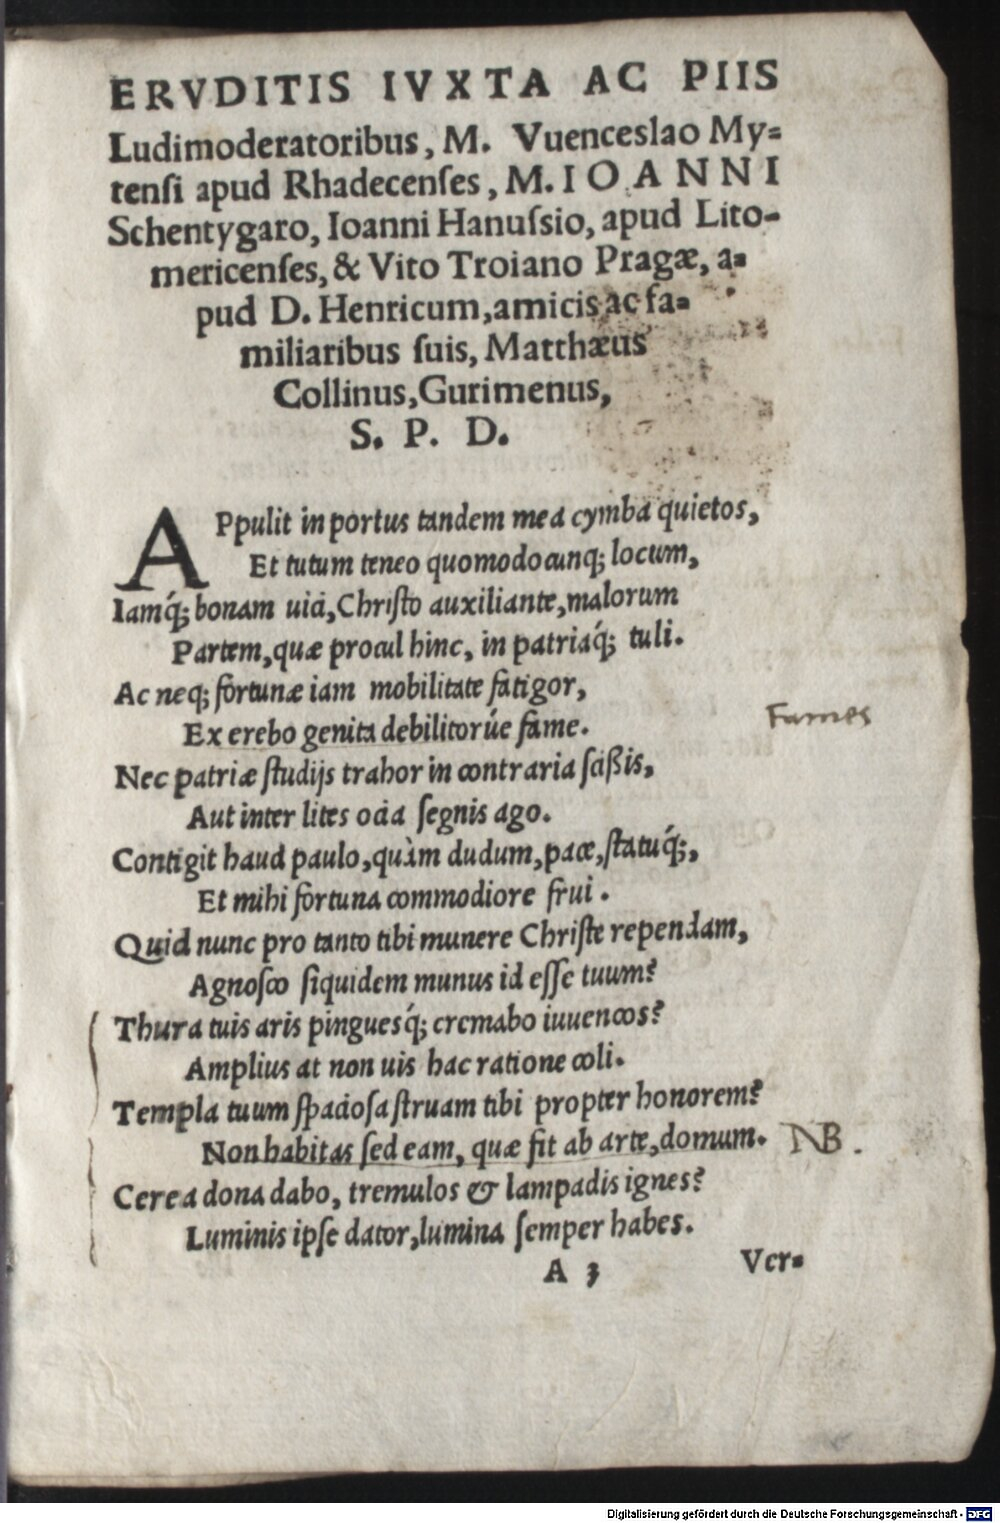 ERVDITIS IVXTA AC PIIS
Ludimoderatoribus, M. Vuenceslao My=
tensi apud Rhadecenses, M. IOANNI
Schentygaro, Ioanni Hanussio, apud Lito-
mericenses, & Vito Troiano Pragæ, a=
pud D. Henricum, amicis ac fa=
miliaribus suis, Matthæus
Collinus, Gurimenus,
S. P. D.
APpulit in portus tandem mea cymba quietos,
Et tutum teneo quomodocunq; locum,
Iamq́; bonam uici, Christo auxiliante, malorum
Partem, quæ procul hinc, in patriaq́; tuli.
Ac neq; fortunæ iam mobilitate fatigor,
Ex erebo genita debilitorúe fame.
Fames
Nec patriæ studijs trahor in contraria scißis,
Aut inter lites ocia segnis ago.
Contigit haud paulo, quàm dudum, pace, statuq́;,
Et mihi fortuna commodiore frui.
Quid nunc pro tanto tibi munere Christe rependam,
Agnosco siquidem munus id esse tuum?
Thura tuis aris pinguesq́; cremabo iuuencos?
Amplius at non uis hac ratione coli.
Templa tuum spaciosa struam tibi propter honorem?
Non habitas sed eam, quæ fit ab arte, domum. NB.
Cerea dona dabo, tremulos & lampadis ignes?
Luminis ipse dator, lumina semper habes.
A 3 Ver=
Digitalisierung gefördert durch die Deutsche Forschungsgemeinschaft - DFG